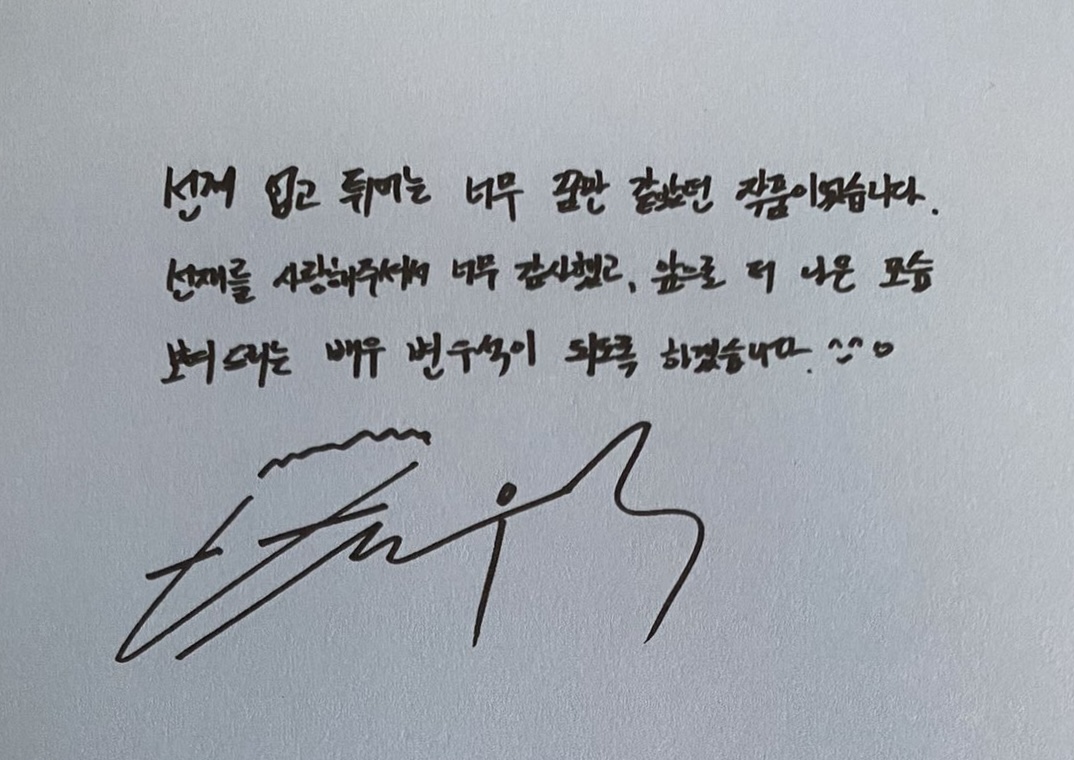 선재 업고 튀어는 너무 꿈만 같았던 작품이였습니다.
선재를 사랑해주셔서 너무 감사했고, 앞으로 더 나은 모습
보여드리는 배우 변우석이 되도록 하겠습니다. ^^ㅇ